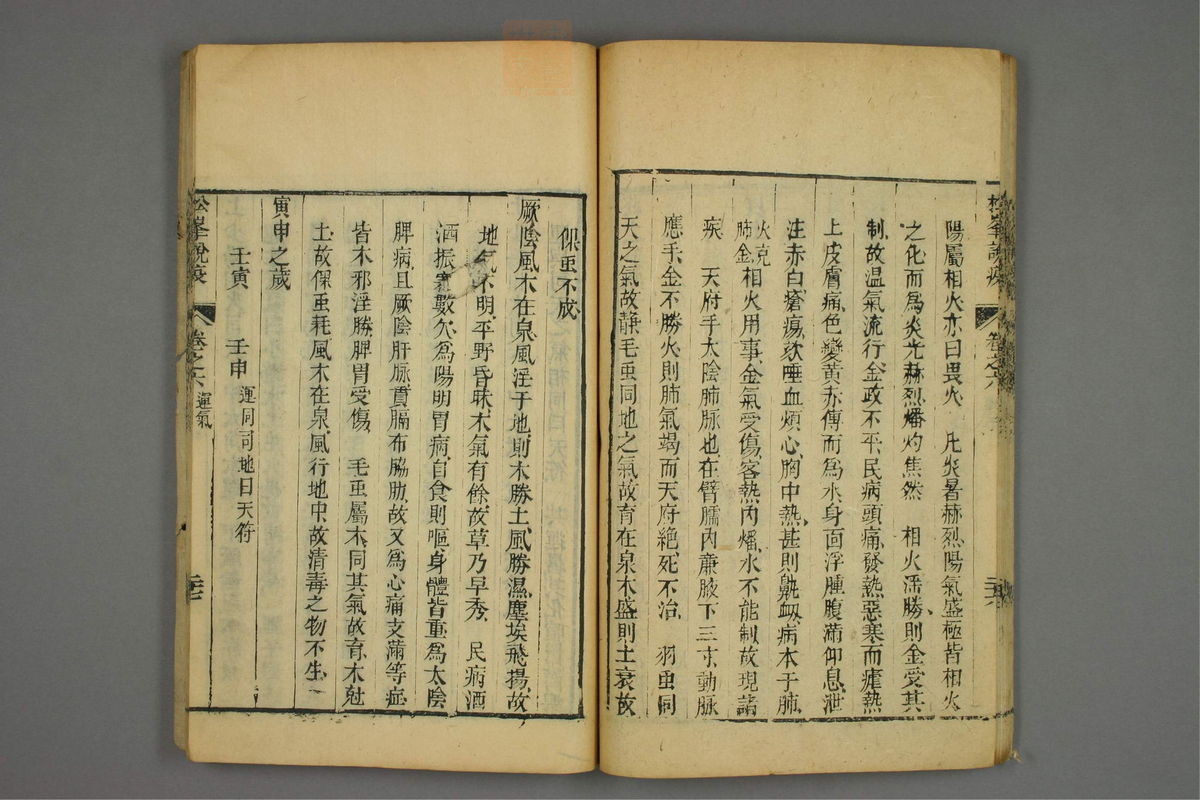 陽屬相火亦曰畏火 凡炎暑赫烈陽氣盛極皆相火
之化而爲炎光赫烈燔灼焦然 相火淫勝則金受其
制故温氣流行金政不平民病頭痛發熱惡寒而瘧熱
上皮膚痛色變黃赤傳而爲水身面浮腫腹滿仰息泄
注赤白瘡瘍欬唾血煩心胸中熱甚則鼽衂病本于肺
火克肺金相火用事金氣受傷客熱內燔水不能制故現諸
疾 天府手太陰肺脈也在臂臑內亷腋下三寸動脈
應手金不勝火則肺氣竭而天府絶死不治 羽虫同
天之氣故静毛虫同地之氣故育在泉木盛則土衰故
倮虫不成
厥陰風木在泉風淫于地則木勝土風勝濕塵埃飛揚故
地氣不明平野昏昧木氣有餘故草乃早秀 民病洒
洒振寒數欠爲陽明胃病自食則嘔身體皆重爲太陰
脾病且厥陰肝脈貫膈布脇肋故又爲心痛支滿等症
皆木邪淫勝脾胃受傷 毛虫屬木同其氣故育木尅
土故倮虫耗風木在泉風行地中故清毒之物不生
寅申之歲
壬寅 壬申 運同司地曰天符
松峯說疫 卷之六 運氣